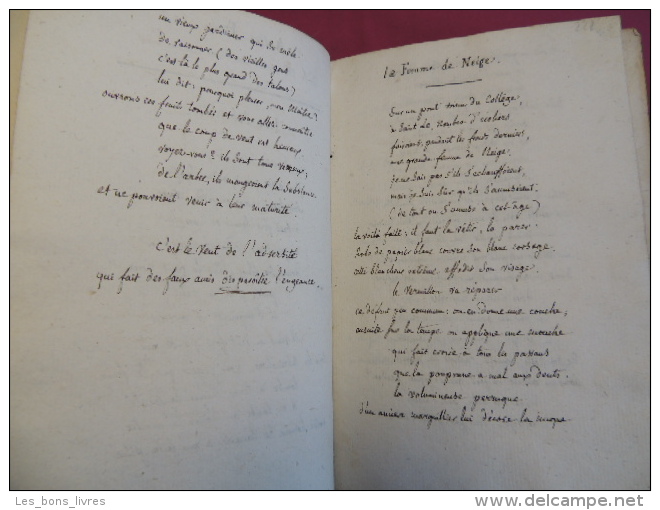 un vieux jardinier qui se mêle
de raisonner (des vieilles gens
c'est là le plus grand des talens)
lui dit: pourquoi pleurer, mon
ouvrons ces fruits tombés et vous allez connaitre
que le coup de vent est heureux
voyez-vous? ils sont tous vereux;
de l'arbre, ils mangeroient la substance
et ne pouvoient venir à leur maturité.
c'est le vent de l'adversité
qui fait des faux amis disparoitre l'engeance.
La Femme de Neige.
Sur un pont du Collège,
à Saint Lo, nombre d'écoliers
faisoient, pendant les froids derniers,
une grande femme de Neige.
je ne sais pas s'ils s'échauffoient,
mais je suis sûr qu'ils s'amusoient
(de tout on s'amuse à cet âge)
la voilà faite: il faut la vêtir, la parer.
robe de papier blanc couvre son blanc corsage
cette blancheur extrême affadit son visage
le vermillon va réparer
ce défaut peu commun: on en donne une couche;
ensuite sur la tempe on applique une mouche
qui fait croire à tous les passans
que la pouponne a mal aux dents.
la volumineuse perruque
d'un ancien marguillier lui décore la nuque
Les_bons_livres
delcampe.net